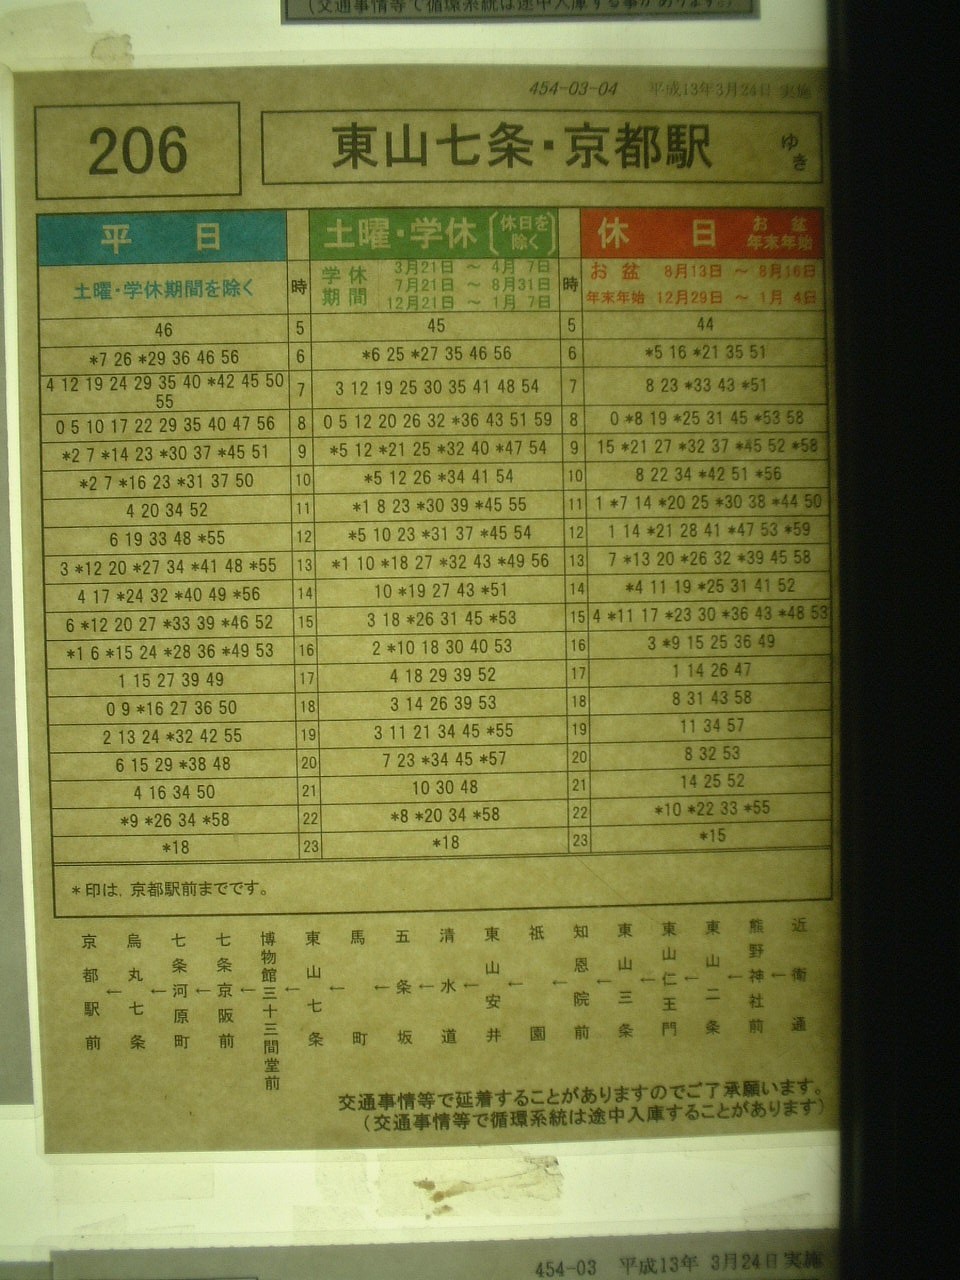 (交通事情等で循環系統は途中入庫する事があります。)
454-03-04 平成13年3月24日 実施
206
東山七条・京都駅 ゆき
平日 土曜・学休 (休日を除く) 休日 お盆 年末年始
土曜・学休期間を除く 時 学休期間 3月21日 ～ 4月 7日 時 お盆 8月13日 ～ 8月16日
7月21日 ～ 8月31日
12月21日 ～ 1月 7日 年末年始 12月29日 ～ 1月 4日
46 5 45 5 44
*7 26 *29 36 46 56 6 *6 25 *27 35 46 56 6 *5 16 *21 35 51
4 12 19 24 29 35 40 *42 45 50 55 7 3 12 19 25 30 35 41 48 54 7 8 23 *33 43 *51
0 5 10 17 22 29 35 40 47 56 8 0 5 12 20 26 32 *36 43 51 59 8 0 *8 19 *25 31 45 *53 58
*2 7 *14 23 *30 37 *45 51 9 *5 12 *21 25 *32 40 *47 54 9 15 *21 27 *32 37 *45 52 *58
*2 7 *16 23 *31 37 50 10 *5 12 26 *34 41 54 10 8 22 34 *42 51 *56
4 20 34 52 11 *1 8 23 *30 39 *45 55 11 1 *7 14 *20 25 *30 38 *44 50
6 19 33 48 *55 12 *5 10 23 *31 37 *45 54 12 1 14 *21 28 41 *47 53 *59
3 *12 20 *27 34 *41 48 *55 13 *1 10 *18 27 *32 43 *49 56 13 7 *13 20 *26 32 *39 45 58
4 17 *24 32 *40 49 *56 14 10 *19 27 43 *51 14 *4 11 19 *25 31 41 52
6 *12 20 27 *33 39 *46 52 15 3 18 *26 31 45 *53 15 4 *11 17 *23 30 *36 43 *48 53
*1 6 *15 24 *28 36 *49 53 16 2 *10 18 30 40 53 16 3 *9 15 25 36 49
1 15 27 39 49 17 4 18 29 39 52 17 1 14 26 47
0 9 *16 27 36 50 18 3 14 26 39 53 18 8 31 43 58
2 13 24 *32 42 55 19 3 11 21 34 45 *55 19 11 34 57
6 15 29 *38 48 20 7 23 *34 45 *57 20 8 32 53
4 16 34 50 21 10 30 48 21 14 25 52
*9 *26 34 *58 22 *8 *20 34 *58 22 *10 *22 33 *55
*18 23 *18 23 *15
*印は、京都駅前までです。
京都駅前 ← 烏丸七条 ← 七条河原町 ← 七条京阪前 ← 博物館三十三間堂前 ← 東山七条 ← 馬町 ← 五条坂 ← 清水道 ← 東山安井 ← 祇園 ← 知恩院前 ← 東山三条 ← 東山仁王門 ← 東山二条 ← 熊野神社前 ← 近衛通
交通事情等で延着することがありますのでご了承願います。
(交通事情等で循環系統は途中入庫することがあります)
454-03 平成13年 3月24日実施